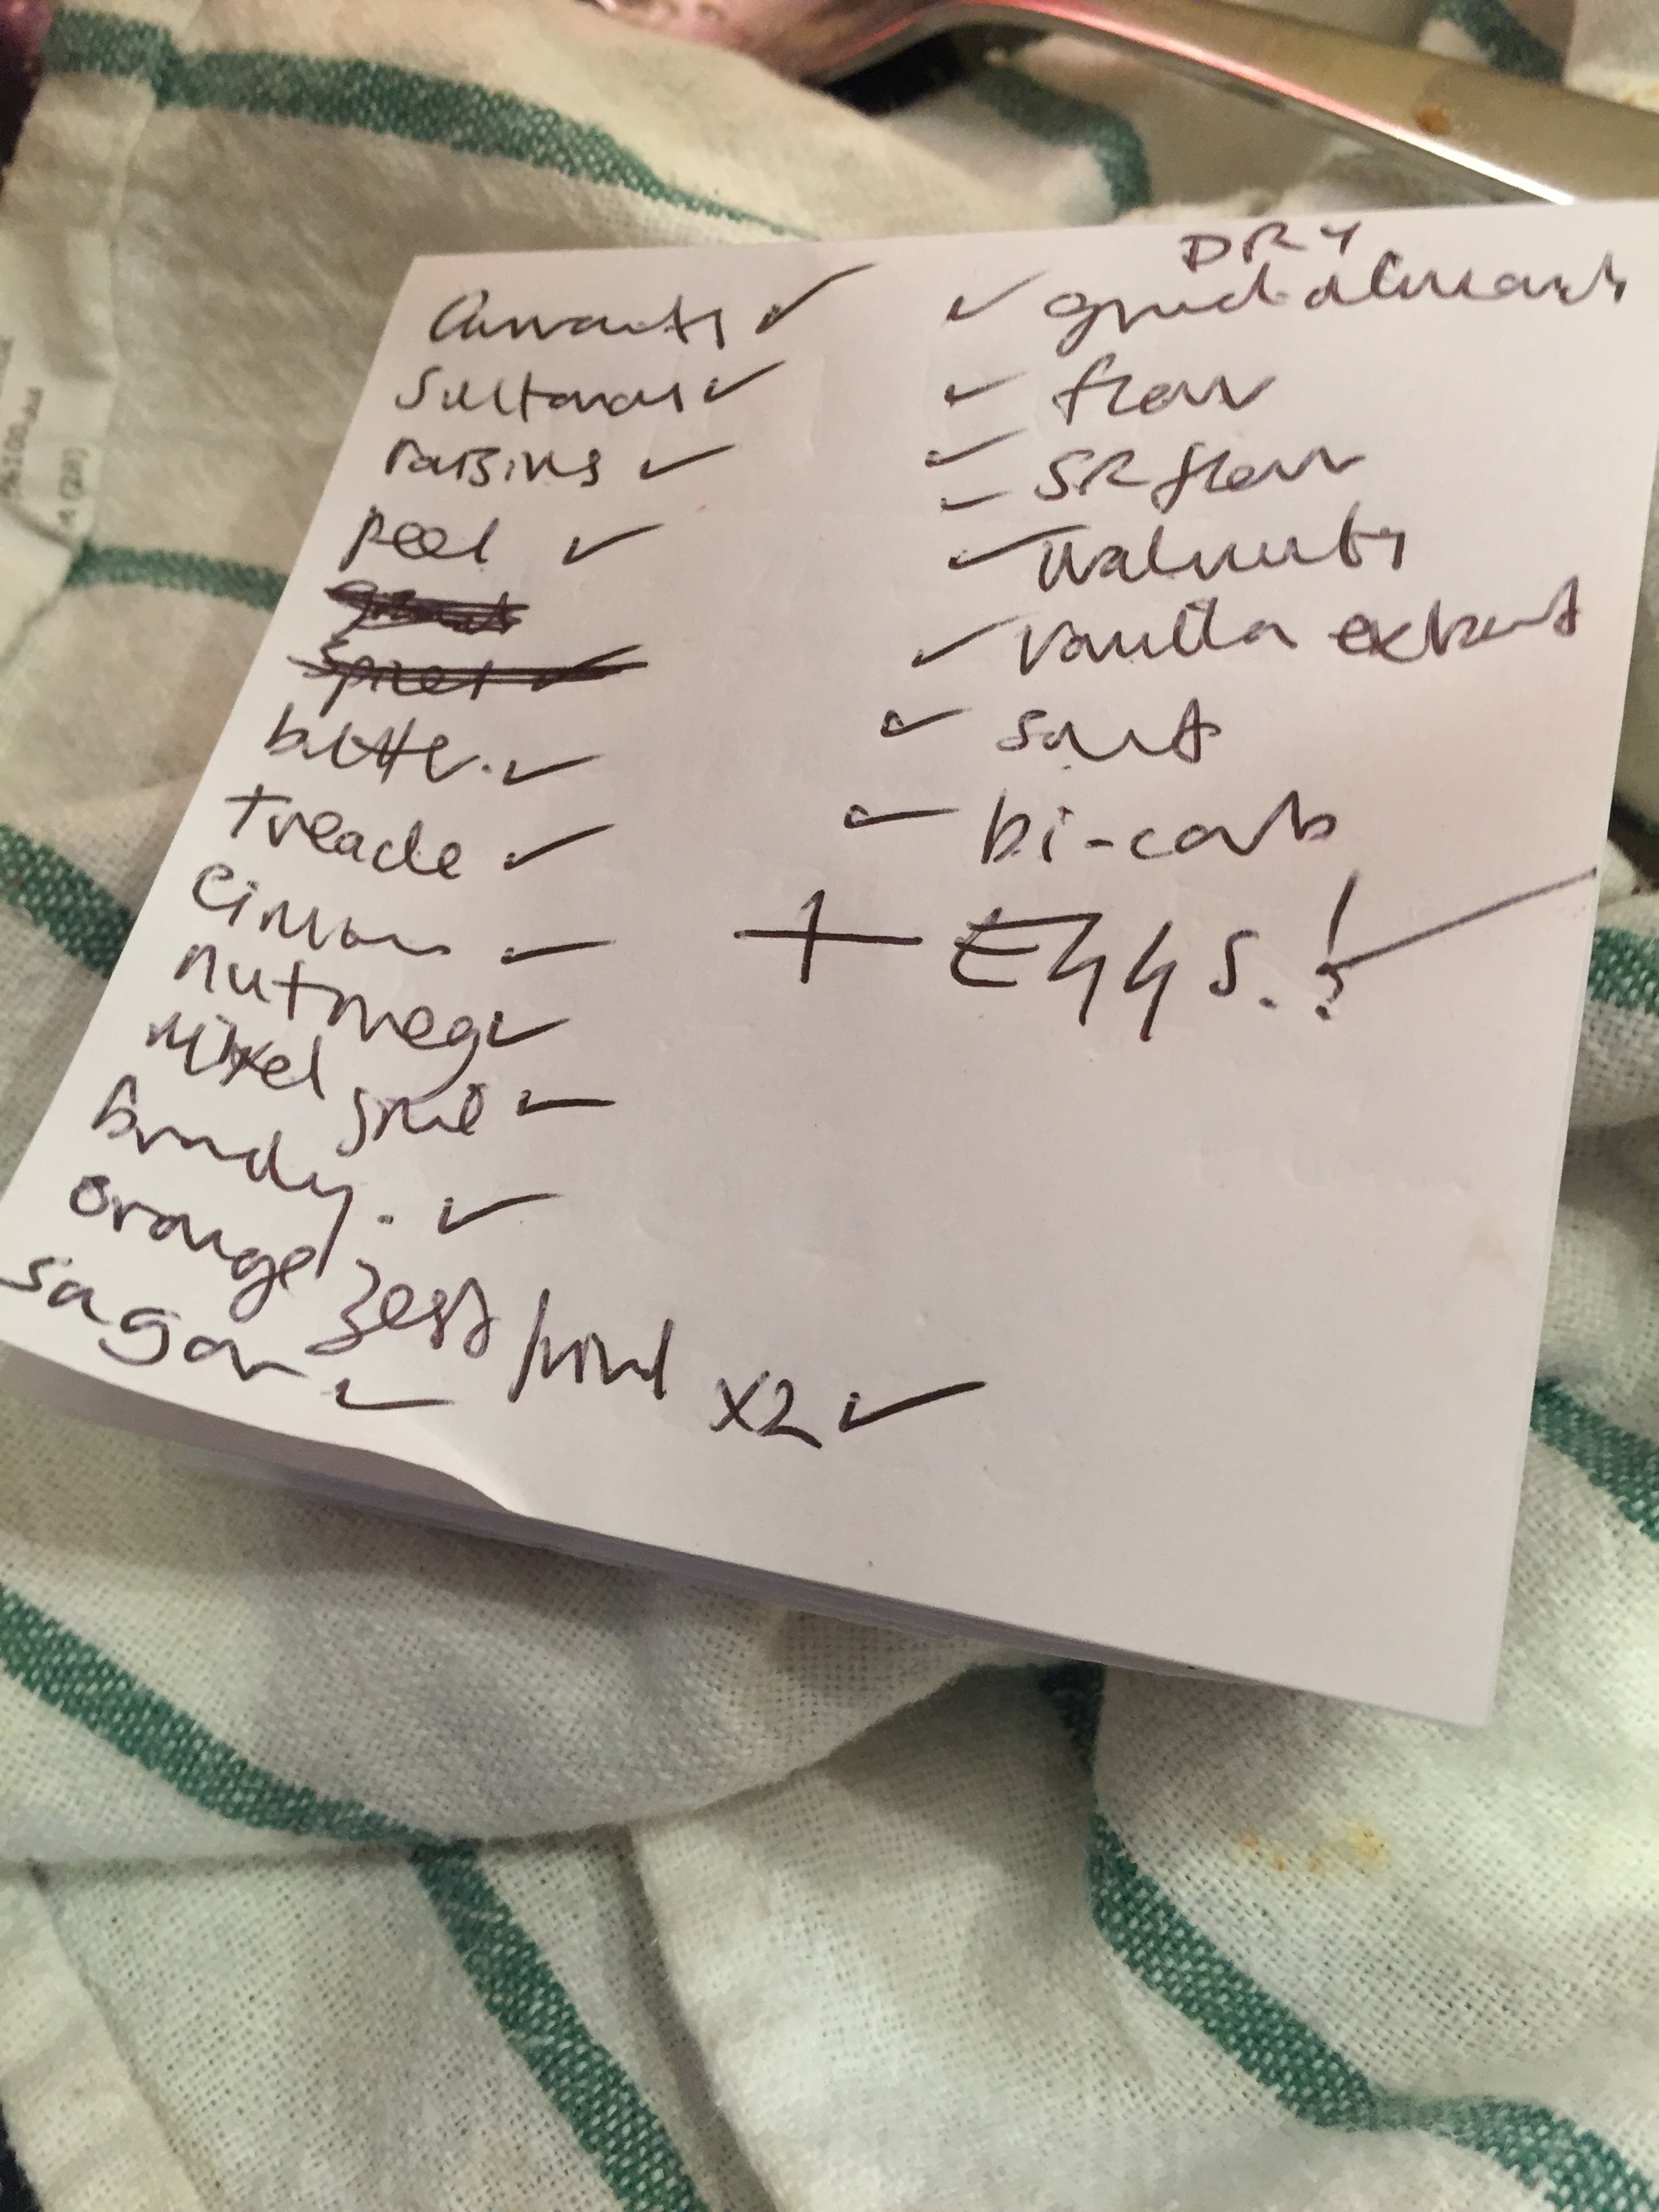 Currants ✓
Sultanas ✓
raisins ✓
peel ✓
spices ✓
butter. ✓
treacle ✓
Cinnamon ✓
nutmeg ✓
Mixed spice ✓
brandy. ✓
orange zest/rind x2 ✓
sugar ✓
DRY
✓ ground almonds
✓ flour
✓ SR flour
✓ walnuts
✓ vanilla extract
✓ salt
✓ bi-carb
+ Eggs.! ✓